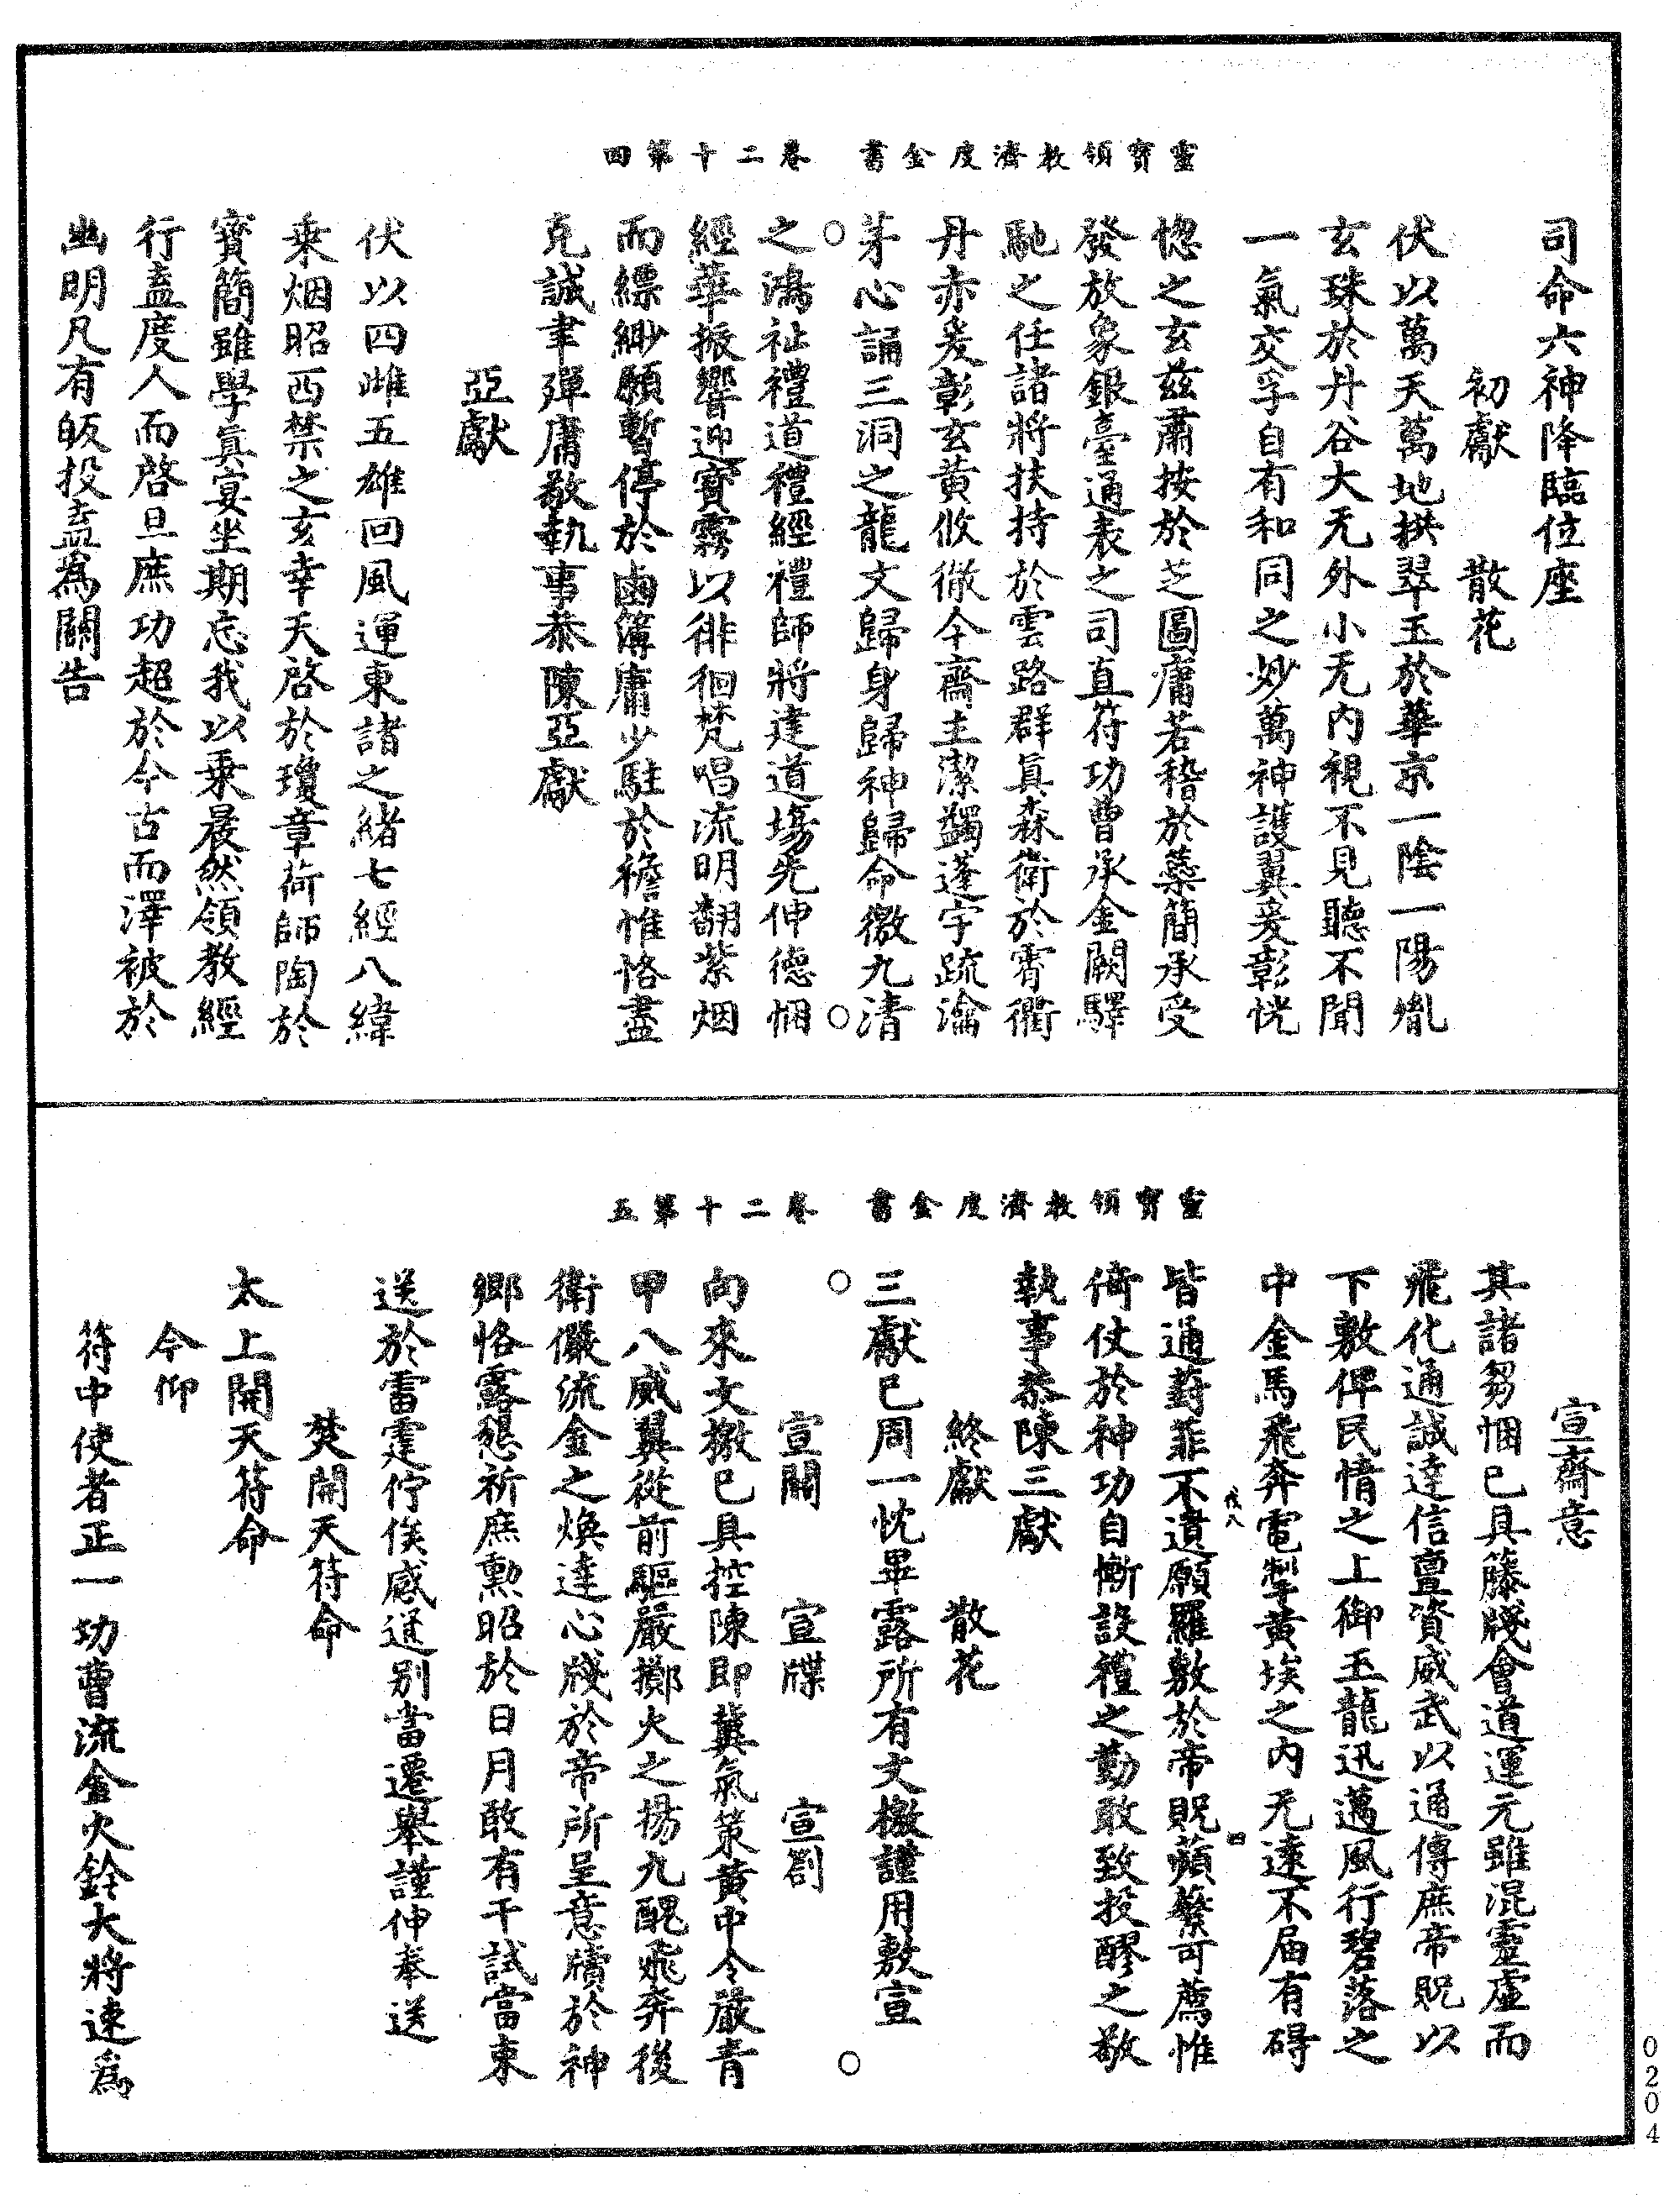 靈寶領教濟度金書　卷二十第四
司命六神降臨位座
初獻　散花
伏以萬天萬地拱翠玉於華京一陰一陽胤
玄珠於丹谷大无外小无內視不見聽不聞
一氣交孚自有和同之妙萬神護翼爰彰恍
惚之玄茲肅按於芝圖庸若稽於蘂簡承受
發放象銀臺通表之司直符功曹承金闕驛
馳之任諸將扶持於雲路群真森衛於霄衢
丹赤爰彰玄黃攸徹今齋主潔蠲蓬宇疏瀹
茅心誦三洞之龍文歸身歸神歸命徼九清
之鴻祉禮道禮經禮師將建道場先伸德悃
經華振響迎寶霧以徘徊梵唱流明翻紫烟
而縹緲願暫停於鹵簿庸少駐於襜惟恪盡
克誠聿殫庸敬執事恭陳亞獻
亞獻
伏以四雌五雄回風運東諸之緒七經八緯
乘烟昭西禁之玄幸天啓於瓊章荷師陶於
寶簡雖學真宴坐期忘我以乘晨然領教經
行盍度人而啓旦庶功超於今古而澤被於
幽明凡有皈投盍為關告
靈寶領教濟度金書　卷二十第五
宣齋意
其諸芻悃已具籐牋會道運元雖混靈虛而
飛化通誠達信亶資威武以通傳庶帝貺以
下敷俾民情之上御玉龍迅邁風行碧落之
中金馬飛奔電掣黃埃之內无遠不届有碍
皆通葑菲不遺願羅敷於帝貺蘋蘩可薦惟
倚仗於神功自慚設禮之勤敢致投醪之敬
執事恭陳三獻
終獻　散花
三獻已周一忱畢露所有文檄謹用敷宣
宣關　宣牒　宣劄
向來文檄已具控陳即冀氣策黃中令嚴青
甲八威翼從前驅嚴擲火之揚九醜飛奔後
衛儼流金之煥達心牋於帝所呈意牘於神
鄉恪露懇祈庶勲昭於日月敢有干試當束
送於雷霆佇俟感通别當遷舉謹伸奉送
焚開天符命
太上開天符命
今仰
符中使者正一功曹流金火鈴大將速為
0204